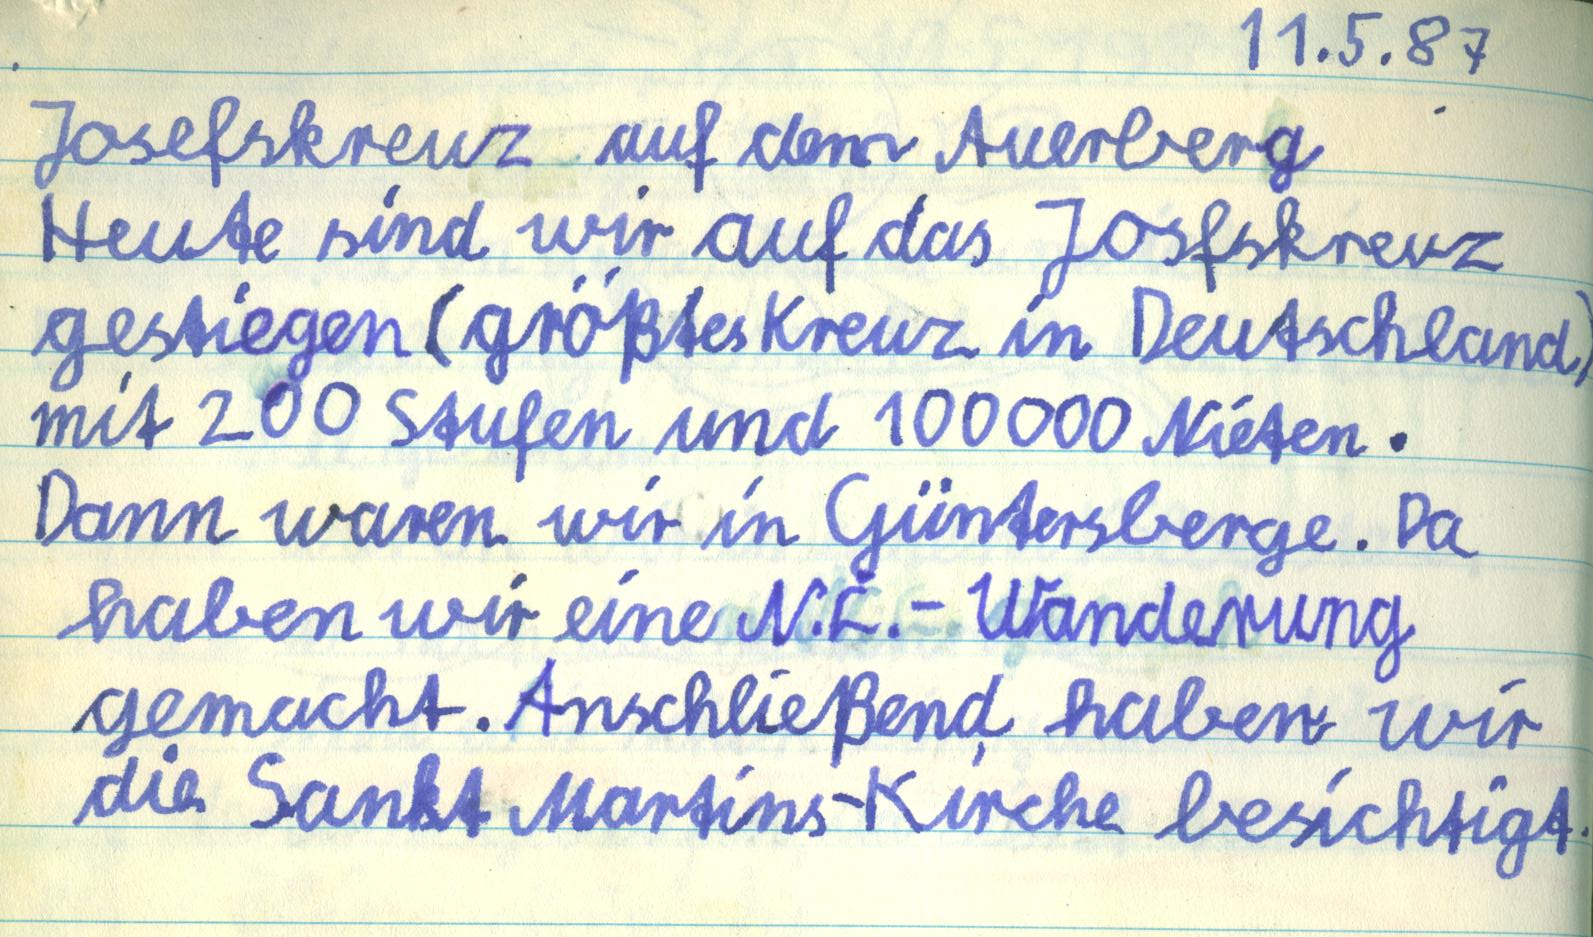 11.5.87
Josefskreuz auf dem Auerberg
Heute sind wir auf das Josfskreuz
gestiegen (größtes Kreuz in Deutschland)
mit 200 Stufen und 100000 Nieten.
Dann waren wir in Güntersberge. Da
haben wir eine N.L.-Wanderung
gemacht. Anschließend haben wir
die Sankt Martins-Kirche besichtigt.